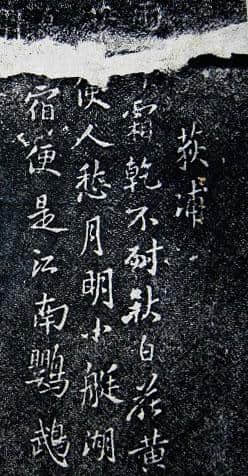 荻浦
霜乾不耐秋白花黄
使人愁月明小艇湖
宿便是江南鸚鵡